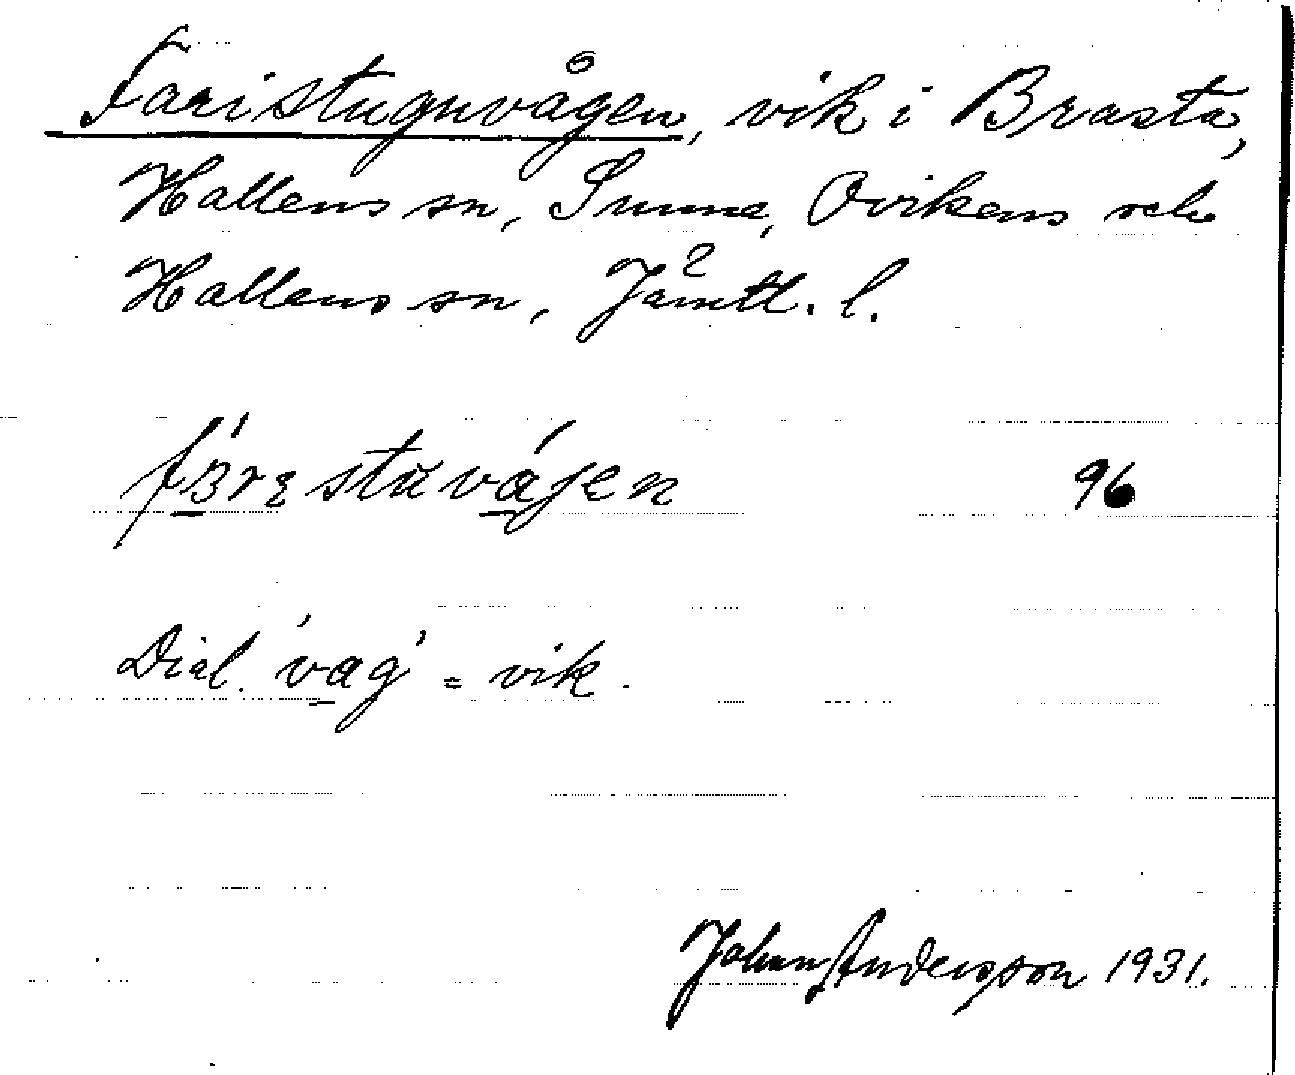 Faristuguvågen, vik i Brasta,
Hallens sn, Sunne, Ovikens och
Hallens sn, Jämtl. l.
96
Dial. 'våg' = vik.
Johan Andersson 1931.